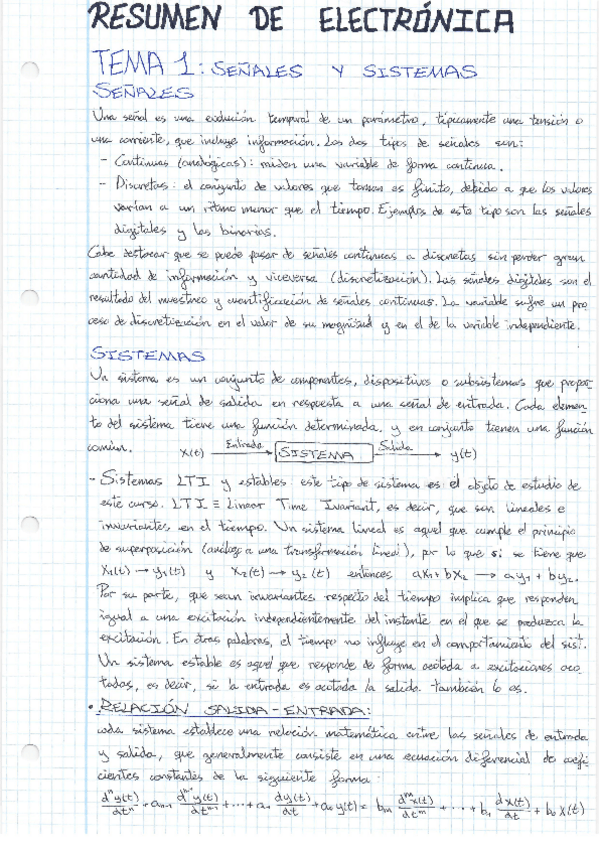 RESUMEN DE ELECTRÓNICA
TEMA 1: SEÑALES Y SISTEMAS
SEÑALES
Una señal es una evolución temporal de un parámetro, típicamente una tensión o
una corriente, que incluye información. Los dos tipos de señales son:
- Continuas (analógicas): miden una variable de forma continua.
- Discretas: el conjunto de valores que toman es finito, debido a que los valores
varían a un ritmo menor que el tiempo. Ejemplos de este tipo son las señales
digitales y las binarias.
Cabe destacar que se puede pasar de señales continuas a discretas sin perder gran
cantidad de información y viceversa (discretización). Las señales digitales son el
resultado del muestreo y cuantificación de señales continuas. La variable sufre un pro
ceso de discretización en el valor de su magnitud y en el de la variable independiente.
SISTEMAS
Un sistema es un conjunto de componentes, dispositivos o subsistemas que propor-
ciona una señal de salida en respuesta a una señal de entrada. Cada elemen-
to del sistema tiene una función determinada, y en conjunto tienen una función
común. x(t) Entrada SISTEMA Salida y(t)
- Sistemas LTI y estables: este tipo de sistema es el objeto de estudio de
este curso. LTI ≡ Linear Time Invariant, es decir, que son lineales e
invariantes en el tiempo. Un sistema lineal es aquel que cumple el principio
de superposición (análogo a una transformación lineal), por lo que si se tiene que
x₁(t) → y₁(t) y x₂(t) → y₂(t) entonces ax₁ + bx₂ → ay₁ + by₂.
Por su parte, que sean invariantes respecto del tiempo implica que responden
igual a una excitación independientemente del instante en el que se produzca la
excitación. En otras palabras, el tiempo no influye en el comportamiento del sist.
Un sistema estable es aquel que responde de forma acotada a excitaciones aco
tadas, es decir, si la entrada es acotada la salida también lo es.
• RELACIÓN SALIDA-ENTRADA:
cada sistema establece una relación matemática entre las señales de entrada
y salida, que generalmente consiste en una ecuación diferencial de coefi
cientes constantes de la siguiente forma:
dⁿy(t)/dtⁿ + aₙ₋₁ dⁿ⁻¹y(t)/dtⁿ⁻¹ + ... + a₁ dy(t)/dt + a₀ y(t) = bₘ dᵐx(t)/dtᵐ + ... + b₁ dx(t)/dt + b₀ x(t)